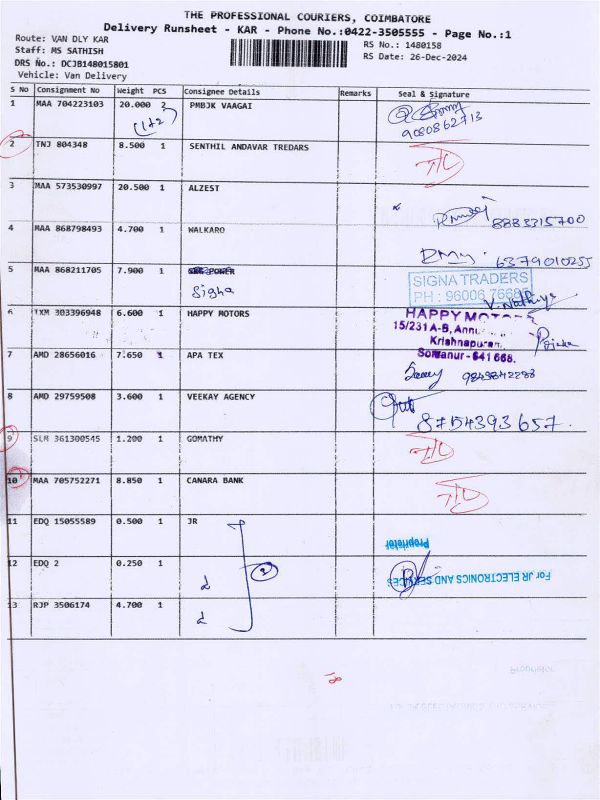 THE PROFESSIONAL COURIERS, COIMBATORE
Delivery Runsheet - KAR - Phone No.:0422-3505555 - Page No.:1
Route: VAN DLY KAR
RS No.: 1480158
Staff: MS SATHISH
RS Date: 26-Dec-2024
DRS No.: DCJB148015801
Vehicle: Van Delivery
S No Consignment No Weight PCS Consignee Details Remarks Seal & Signature
1 MAA 704223103 20.000 PMBJK VAAGAI
(1+2)
9080862713
2 TNJ 804348 8.500 1 SENTHIL ANDAVAR TREDARS
3 MAA 573530997 20.500 1 ALZEST
8883315700
4 MAA 868798493 4.700 1 WALKARO
6379010255
5 MAA 868211705 7.900 1 POWER
Signa
SIGNA TRADERS
PH : 96006 76685
6 TXM 303396948 6.600 1 HAPPY MOTORS
HAPPY MOTORS
15/231A-B, Annu
Krishnapuram,
Somanur - 641 668.
7 AMD 28656016 7.650 1 APA TEX
8 AMD 29759508 3.600 1 VEEKAY AGENCY
8754393657.
9 SLM 361300545 1.200 1 GOMATHY
10 MAA 705752271 8.850 1 CANARA BANK
11 EDQ 15055589 0.500 1 JR
Proprietor
12 EDQ 2 0.250 1
2
For JR ELECTRONICS AND SERVICES
13 RJP 3506174 4.700 1
Proprietor